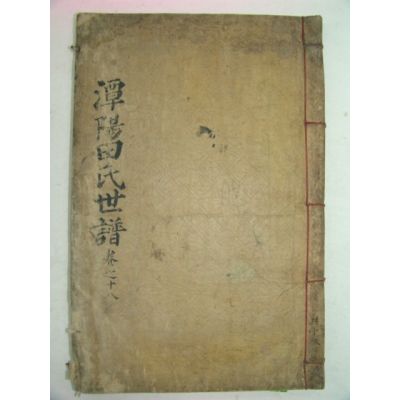 潭陽田氏世譜
卷之十八